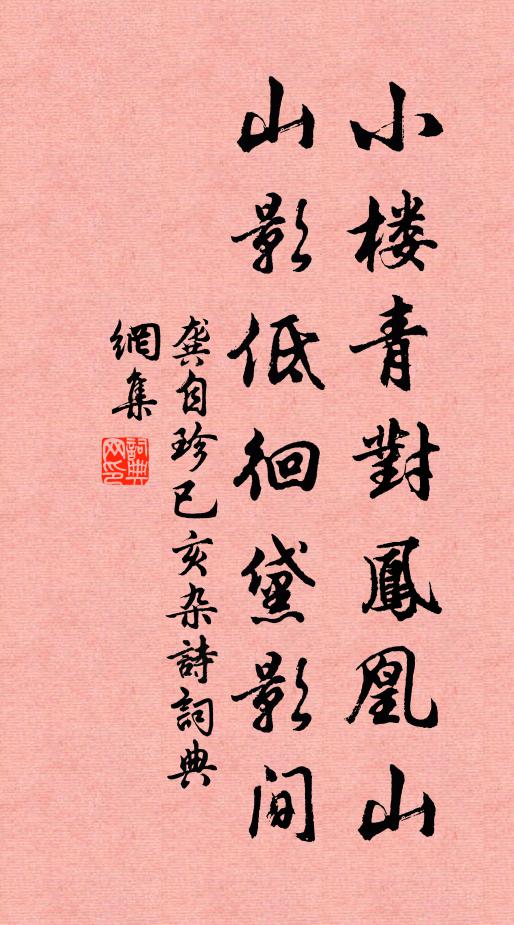 小楼青對鳳凰山
山影低徊黛影间
龚自珍己亥杂詩詞典
網集
詞典
网印